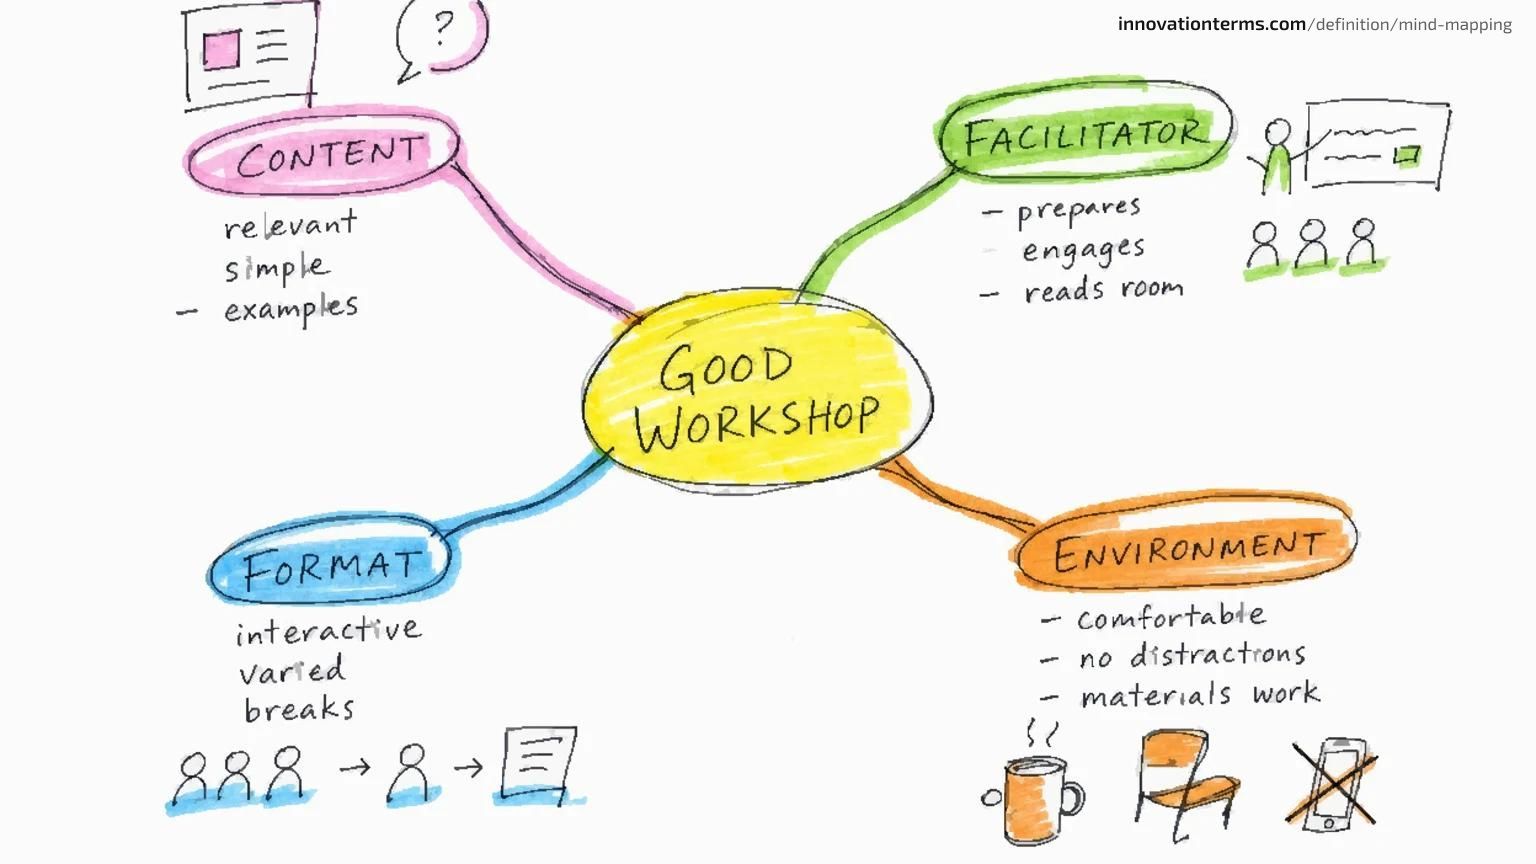 innovationterms.com/definition/mind-mapping
?
CONTENT
relevant
simple
– examples
FACILITATOR
– prepares
engages
– reads room
GOOD
WORKSHOP
FORMAT
interactive
varied
breaks
ENVIRONMENT
– comfortable
– no distractions
– materials work